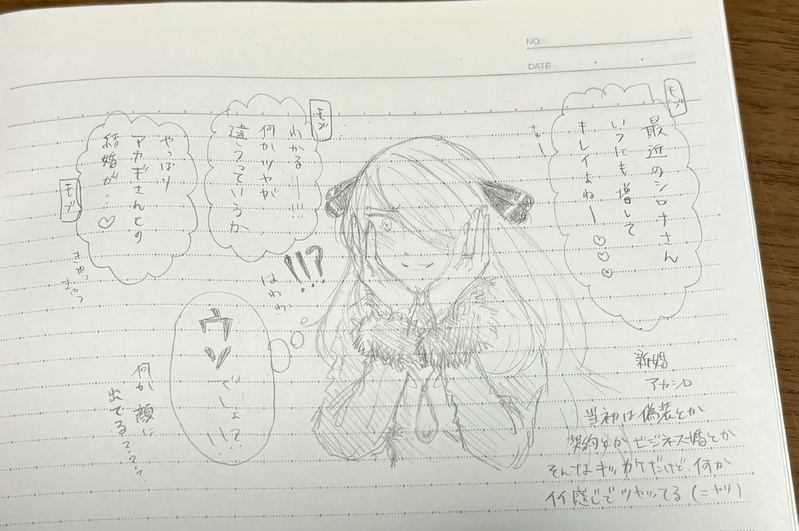 NO.
DATE
モブ
最近のシロナさん
いつにも増して
キレイよねー♡♡♡
きゃー
モブ
わかるー!!!
何かツヤが
違うっていうか
やっぱり
アカギさんとの
結婚が…♡
モブ
きゃっ
きゃっ
!!!?
はわわ
ウソでしょ?
何か顔に
出てる???
新婚
アカシロ
当初は偽装とか
契約とかビジネス婚とか
そんなキッカケだけど何か
イイ感じでツヤッてる(=ヤリ)